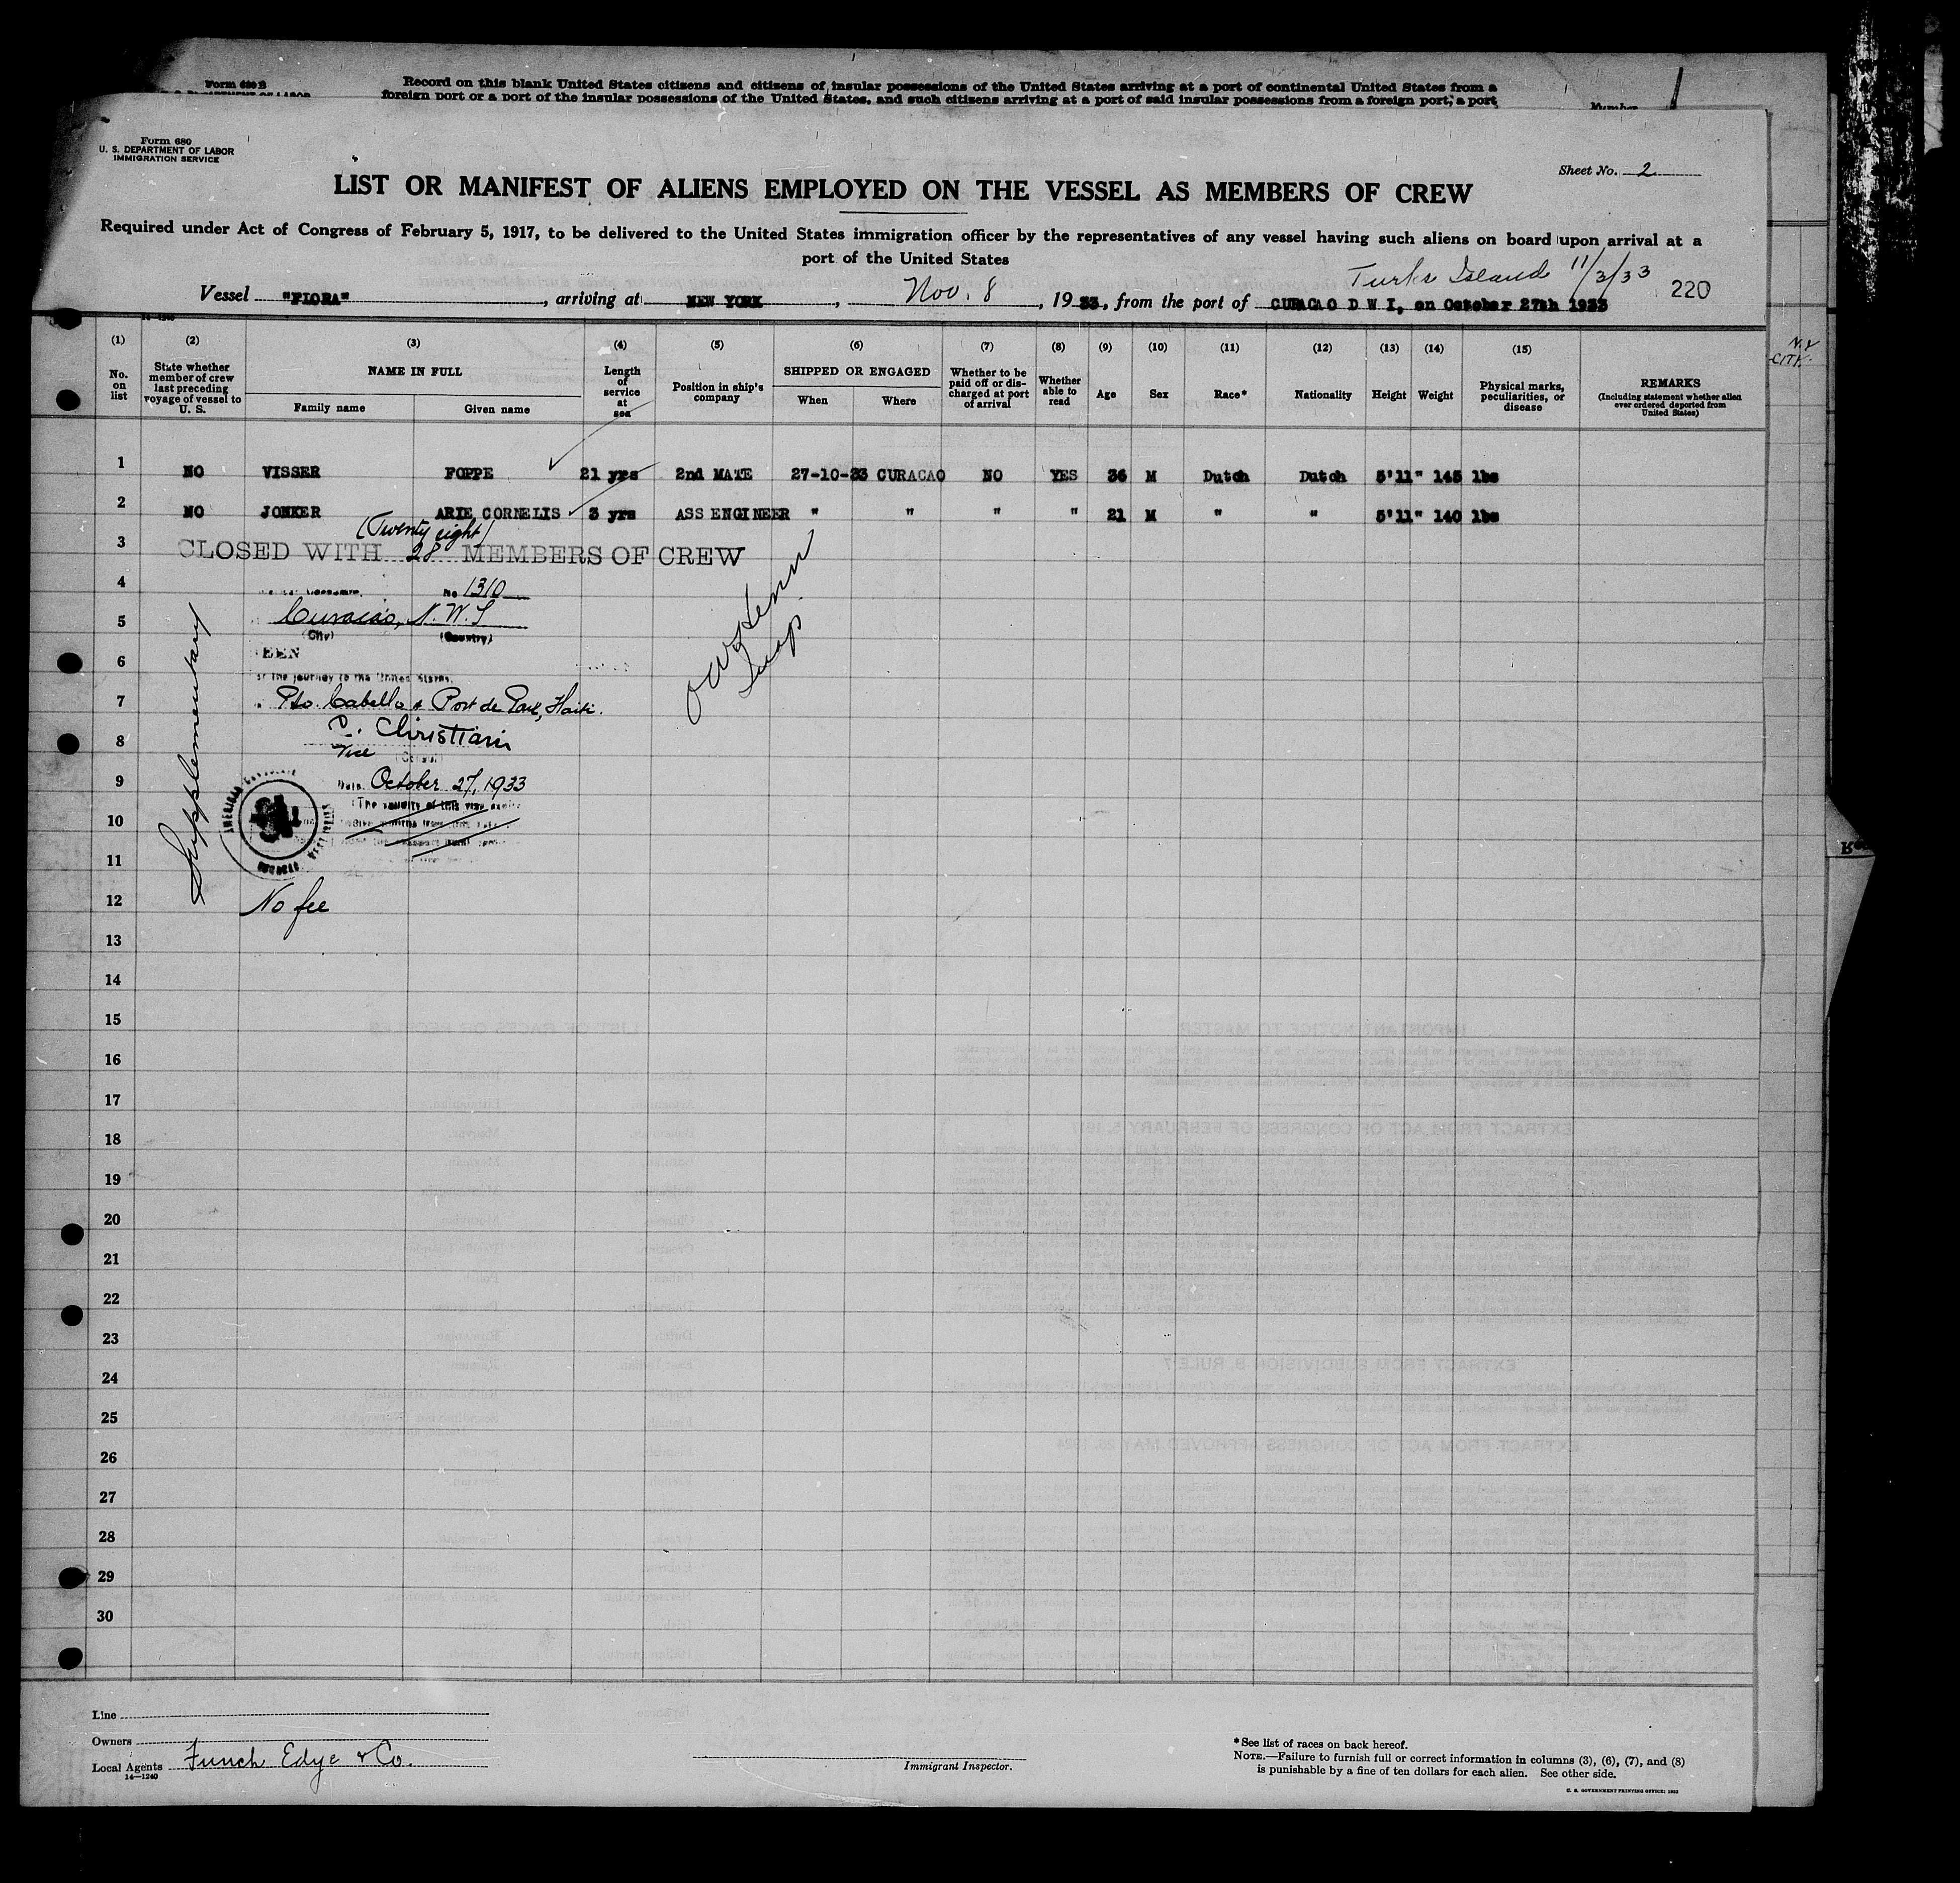 Form 680 B
Record on this blank United States citizens and citizens of insular possessions of the United States arriving at a port of continental United States from a
foreign port or a port of the insular possessions of the United States, and such citizens arriving at a port of said insular possessions from a foreign port, a port
Number
Form 680
U. S. DEPARTMENT OF LABOR
IMMIGRATION SERVICE
Sheet No. 2
LIST OR MANIFEST OF ALIENS EMPLOYED ON THE VESSEL AS MEMBERS OF CREW
Required under Act of Congress of February 5, 1917, to be delivered to the United States immigration officer by the representatives of any vessel having such aliens on board upon arrival at a
port of the United States
Turks Island 11/3/33
Vessel "FLORA", arriving at NEW YORK, Nov. 8, 1933, from the port of CURACAO D W I, on October 27th 1933
220
(1) (2) (3) (4) (5) (6) (7) (8) (9) (10) (11) (12) (13) (14) (15)
No. on list
State whether member of crew last preceding voyage of vessel to U. S.
NAME IN FULL
Family name
Given name
Length of service at sea
Position in ship's company
SHIPPED OR ENGAGED
When
Where
Whether to be paid off or discharged at port of arrival
Whether able to read
Age
Sex
Race*
Nationality
Height
Weight
Physical marks, peculiarities, or disease
REMARKS
(Including statement whether alien ever ordered deported from United States)
N.Y.
CITY.
1 NO VISSER FOPPE 21 yrs 2nd MATE 27-10-33 CURACAO NO YES 36 M Dutch Dutch 5'11" 145 lbs
2 NO JONKER ARIE CORNELIS 3 yrs ASS ENGINEER " " " " 21 M " " 5'11" 140 lbs
(Twenty eight)
3 CLOSED WITH 28 MEMBERS OF CREW
4 No 1310
5 Curacao, N.W.I
(City) (Country)
6 SEEN
for the journey to the United States.
7 Pto. Cabello & Port de Paix, Haiti.
8 C. Christiani
Vice (Consul)
9 Date October 27, 1933
(The validity of this visa expires
10 twelve months from this date
11
12 No fee
Supplementary
AMERICAN CONSULATE
CURACAO
WEST INDIES
13
14
15
16
17
18
19
20
21
22
23
24
25
26
27
28
29
30
Line
Owners
Local Agents Funch Edye & Co.
14—1240
Immigrant Inspector.
*See list of races on back hereof.
NOTE.—Failure to furnish full or correct information in columns (3), (6), (7), and (8)
is punishable by a fine of ten dollars for each alien. See other side.
U. S. GOVERNMENT PRINTING OFFICE: 1932